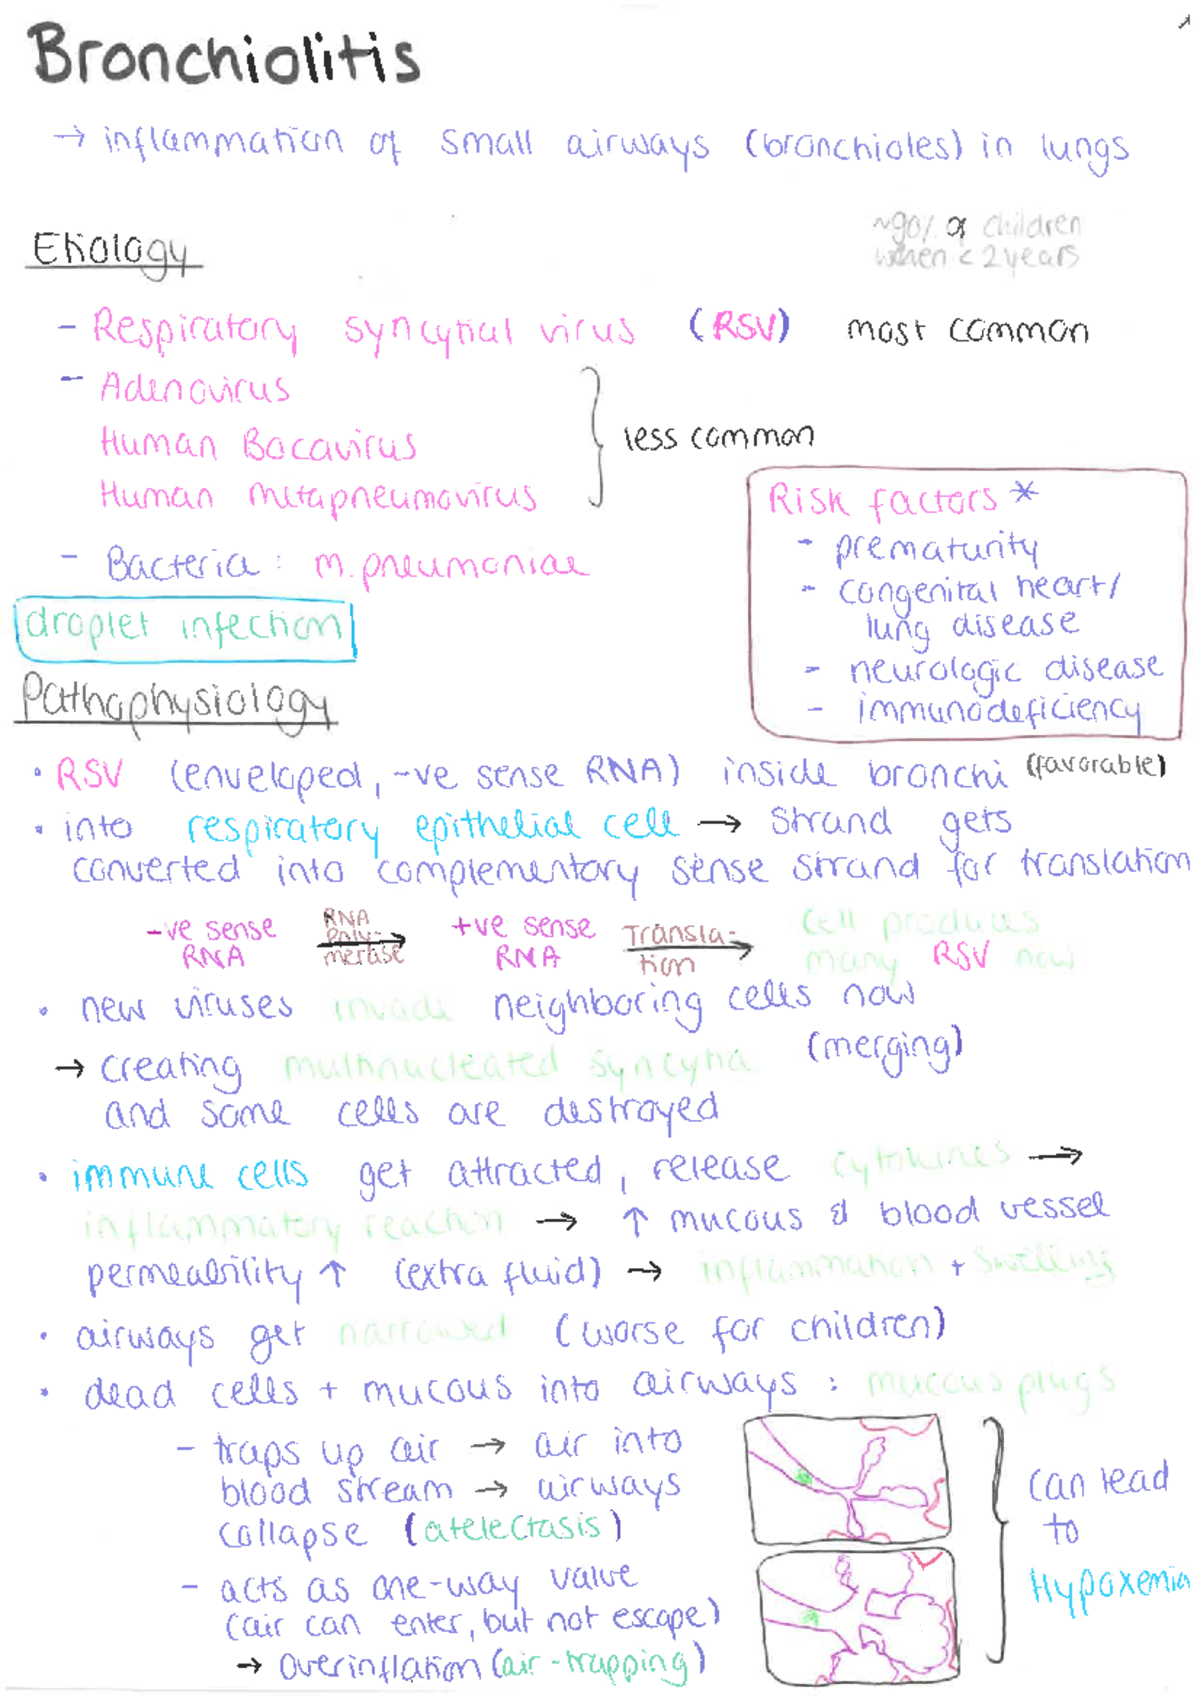 Bronchiolitis
→ inflammation of small airways (bronchioles) in lungs
~90% of children
when < 2 years
Etiology
- Respiratory syncytial virus (RSV) most common
- Adenovirus
Human Bocavirus
Human metapneumovirus
less common
- Bacteria : m. pneumoniae
Risk factors *
- prematurity
- congenital heart/
lung disease
- neurologic disease
- immunodeficiency
droplet infection
Pathophysiology
• RSV (enveloped, -ve sense RNA) inside bronchi (favorable)
• into respiratory epithelial cell → strand gets
converted into complementory sense strand for translation
-ve sense RNA → RNA Poly-merase +ve sense RNA → Transla-tion cell produces many RSV now
• new viruses invade neighboring cells now
→ creating multinucleated syncytia (merging)
and some cells are destroyed
• immune cells get attracted, release cytokines →
inflammatory reaction → ↑ mucous & blood vessel
permeability ↑ (extra fluid) → inflammation + swelling
• airways get narrowed (worse for children)
• dead cells + mucous into airways : mucous plugs
- traps up air → air into
blood stream → airways
collapse (atelectasis)
- acts as one-way valve
(air can enter, but not escape)
→ overinflation (air-trapping)
can lead
to
Hypoxemia